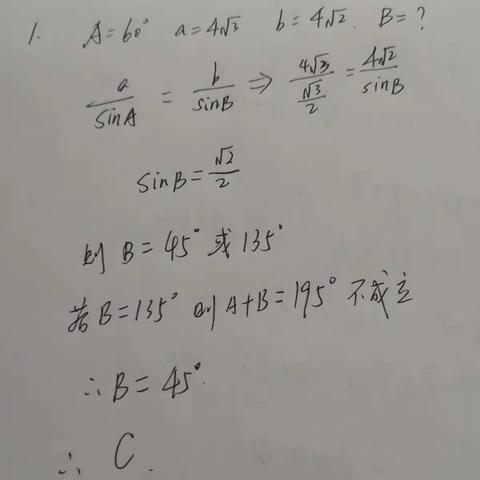 1. A=60° a=4√3 b=4√2. B=?
a/sinA = b/sinB ⇒ 4√3/(√3/2) = 4√2/sinB
sinB=√2/2
则 B=45°或135°
若B=135° 则A+B=195° 不成立
∴B=45°.
∴ C.